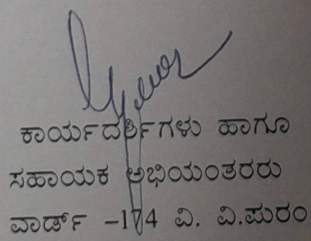 ಕಾರ್ಯದರ್ಶಿಗಳು ಹಾಗೂ
ಸಹಾಯಕ ಅಭಿಯಂತರರು
ವಾರ್ಡ್ -174 ವಿ. ವಿ.ಪುರಂ